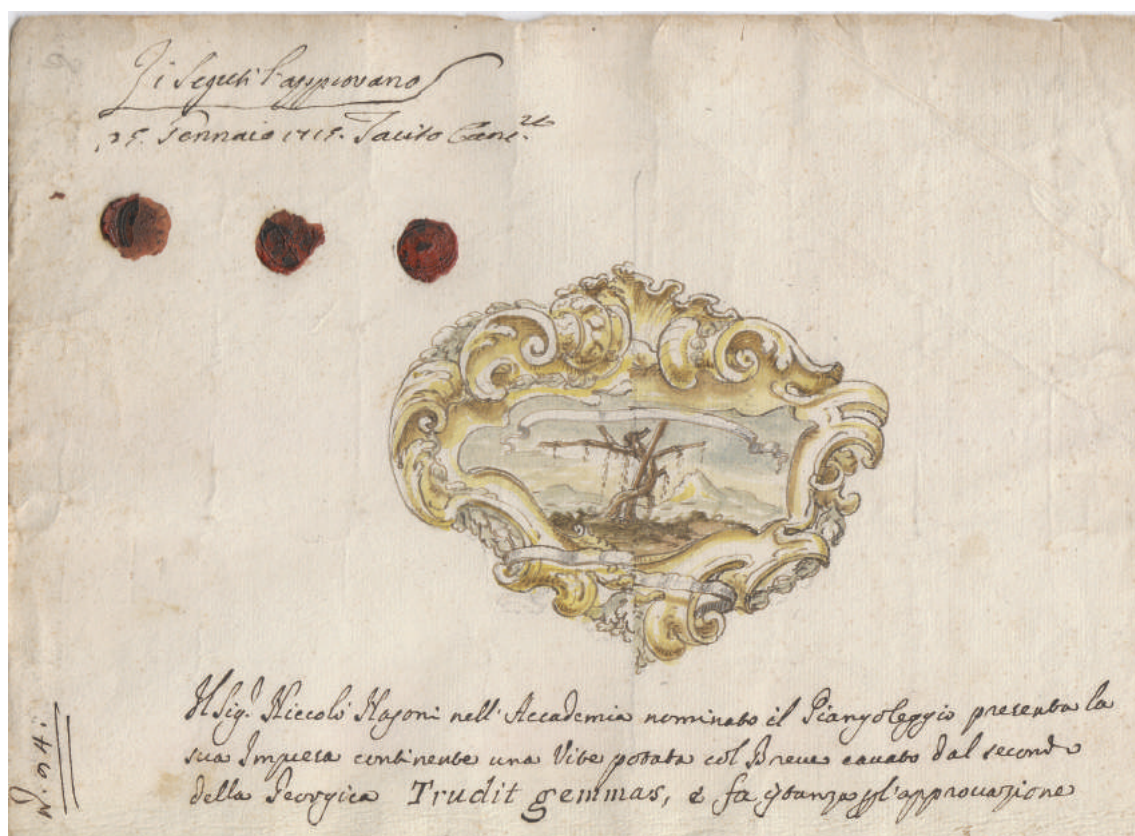 Di Segreti l'approvano
25. Gennaio 1715. Tacito Canc.re
Il Sig.r Niccolò Nasoni nell'Accademia nominato il Piangoleggio presenta la
sua Impresa continente una Vite potata col Breve cavato dal second
della Georgica Trudit gemmas, e fa istanza p l'approvazione
N. 94.